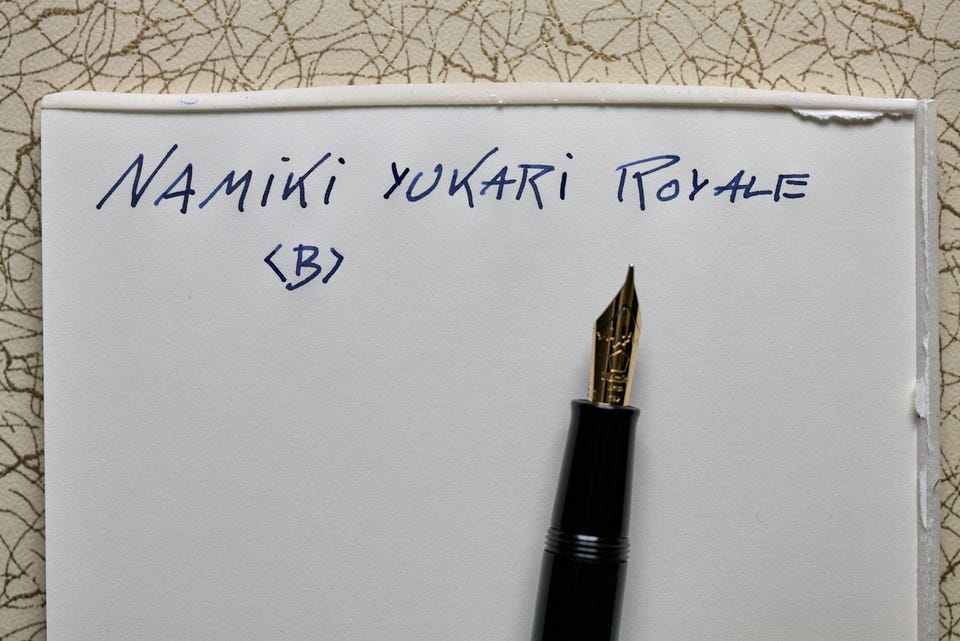 NAMIKI YUKARI ROYALE
<B>